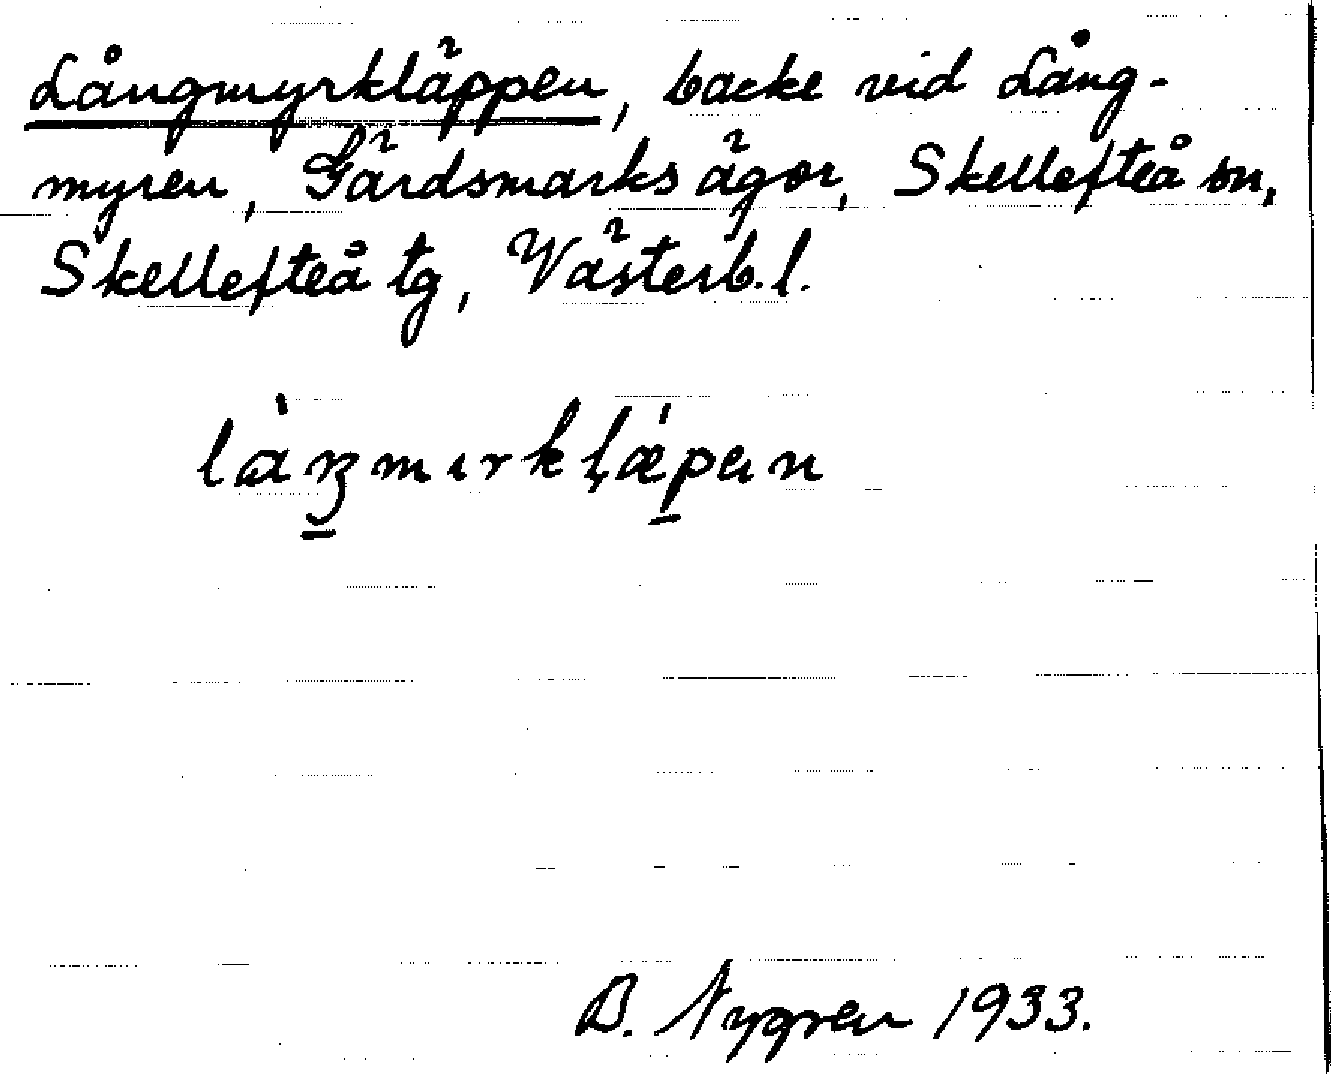 Långmyrkläppen, backe vid Lång-
myren, Gärdsmarks ägor, Skellefteå sn,
Skellefteå tg, Västerb. l.
B. Nygren 1933.